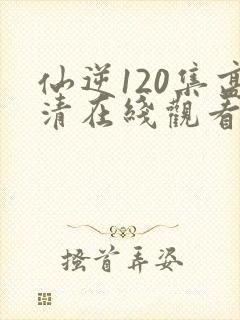 仙逆120集高
清在綫觀看
搔首弄姿